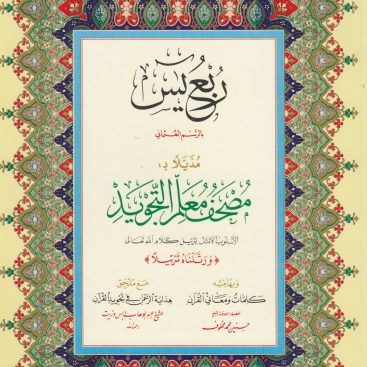 رُبْعُ يسٓ
بالرسم العثماني
مُذَيَّلاً بـ:
مُصْحَفُ مُعَلِّمِ التَّجْوِيدِ
الأسلوب الأمثل لترتيل كلام الله تعالى
﴿ وَرَتَّلْنَاهُ تَرْتِيلًا ﴾
وبهامشه مع ملحق
كلمات ومعاني القرآن هداية الرحمن في تجويد القرآن
حسنين محمد مخلوف